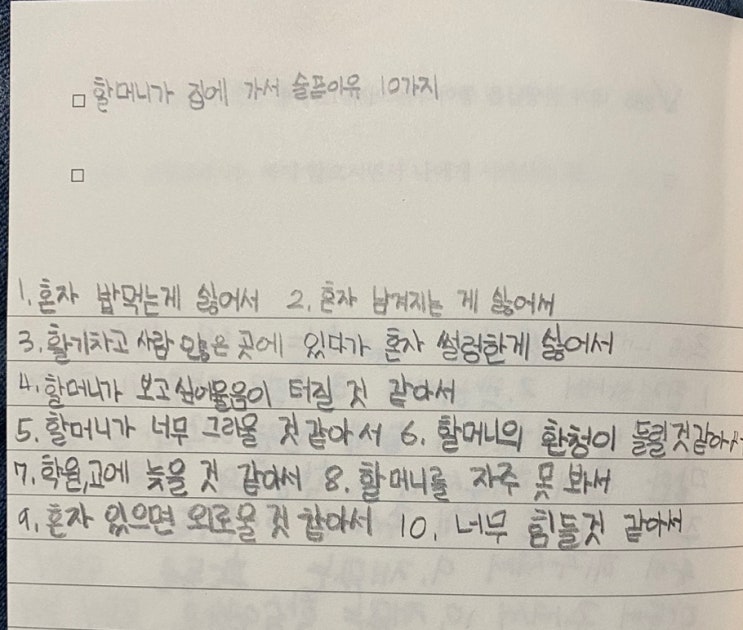 할머니가 집에 가서 슬픈이유 10가지
1. 혼자 밥먹는게 싫어서 2. 혼자 남겨지는 게 싫어서
3. 활기차고 사람 많은 곳에 있다가 혼자 썰렁한게 싫어서
4. 할머니가 보고싶어울음이 터질 것 같아서
5. 할머니가 너무 그리울 것같아서 6. 할머니의 환청이 들릴것같아서
7. 학원,고에 늦을 것 같아서 8. 할머니를 자주 못 봐서
9. 혼자 있으면 외로울 것 같아서 10. 너무 힘들것 같아서